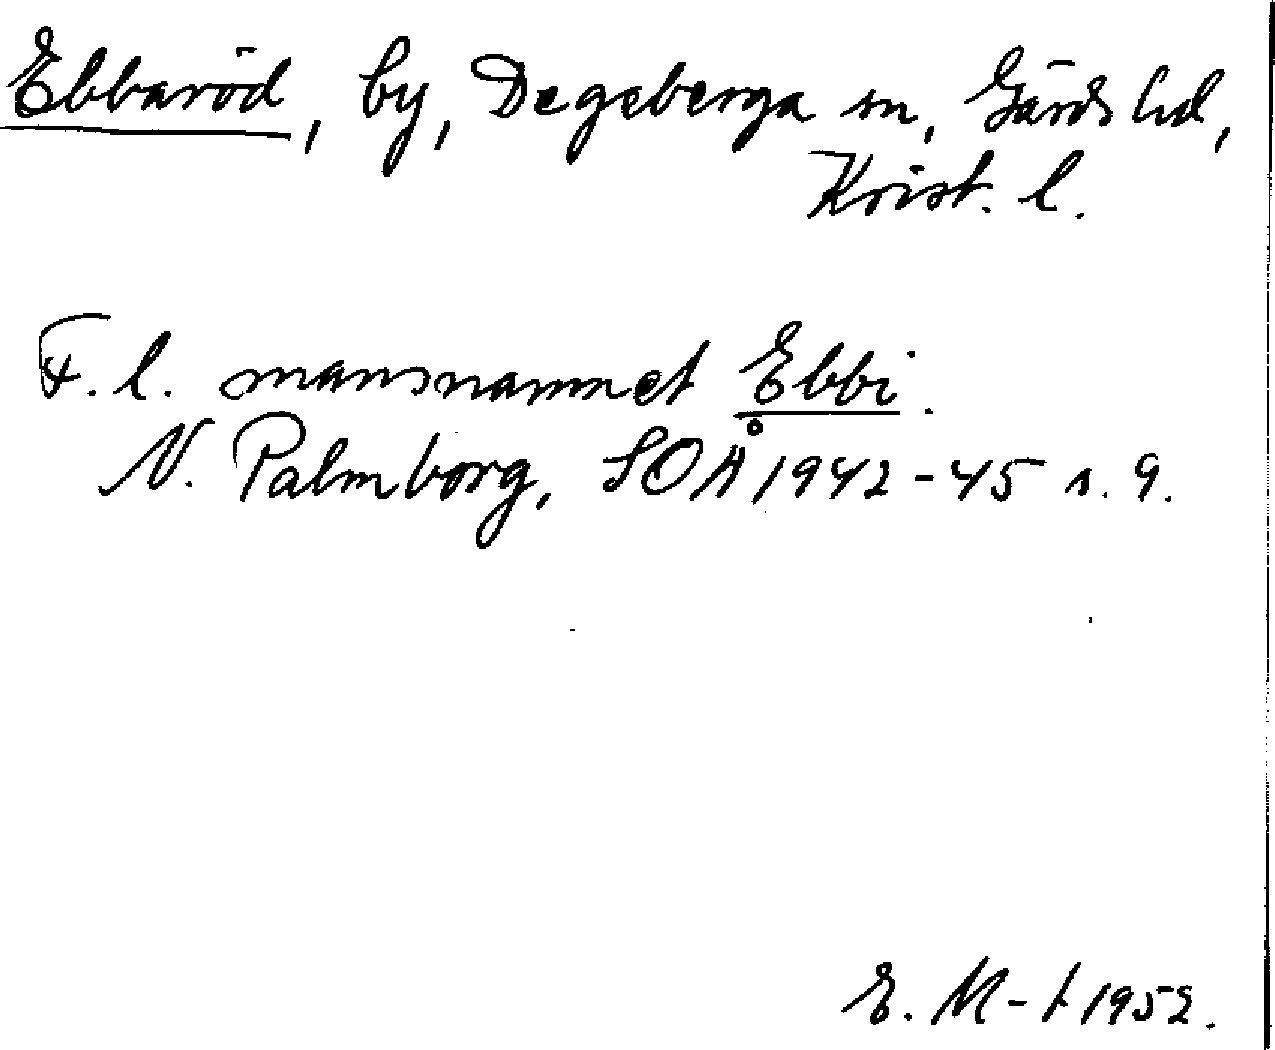 Ebbaröd, by, Degeberga sn, Gärds hd,
Krist. l.
F. l. mansnamnet Ebbi.
N. Palmborg, SOÅ 1942-45 s. 9.
E. M-t 1952.